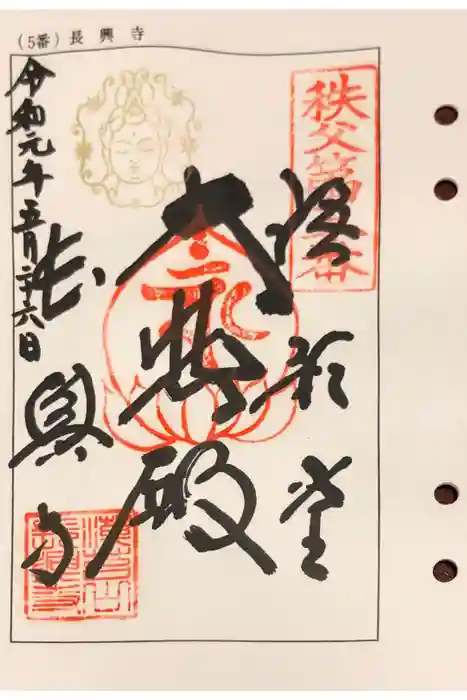 (5番) 長興寺
秩父第五番
語歌堂
大悲殿
令和元年五月二十六日
長興寺